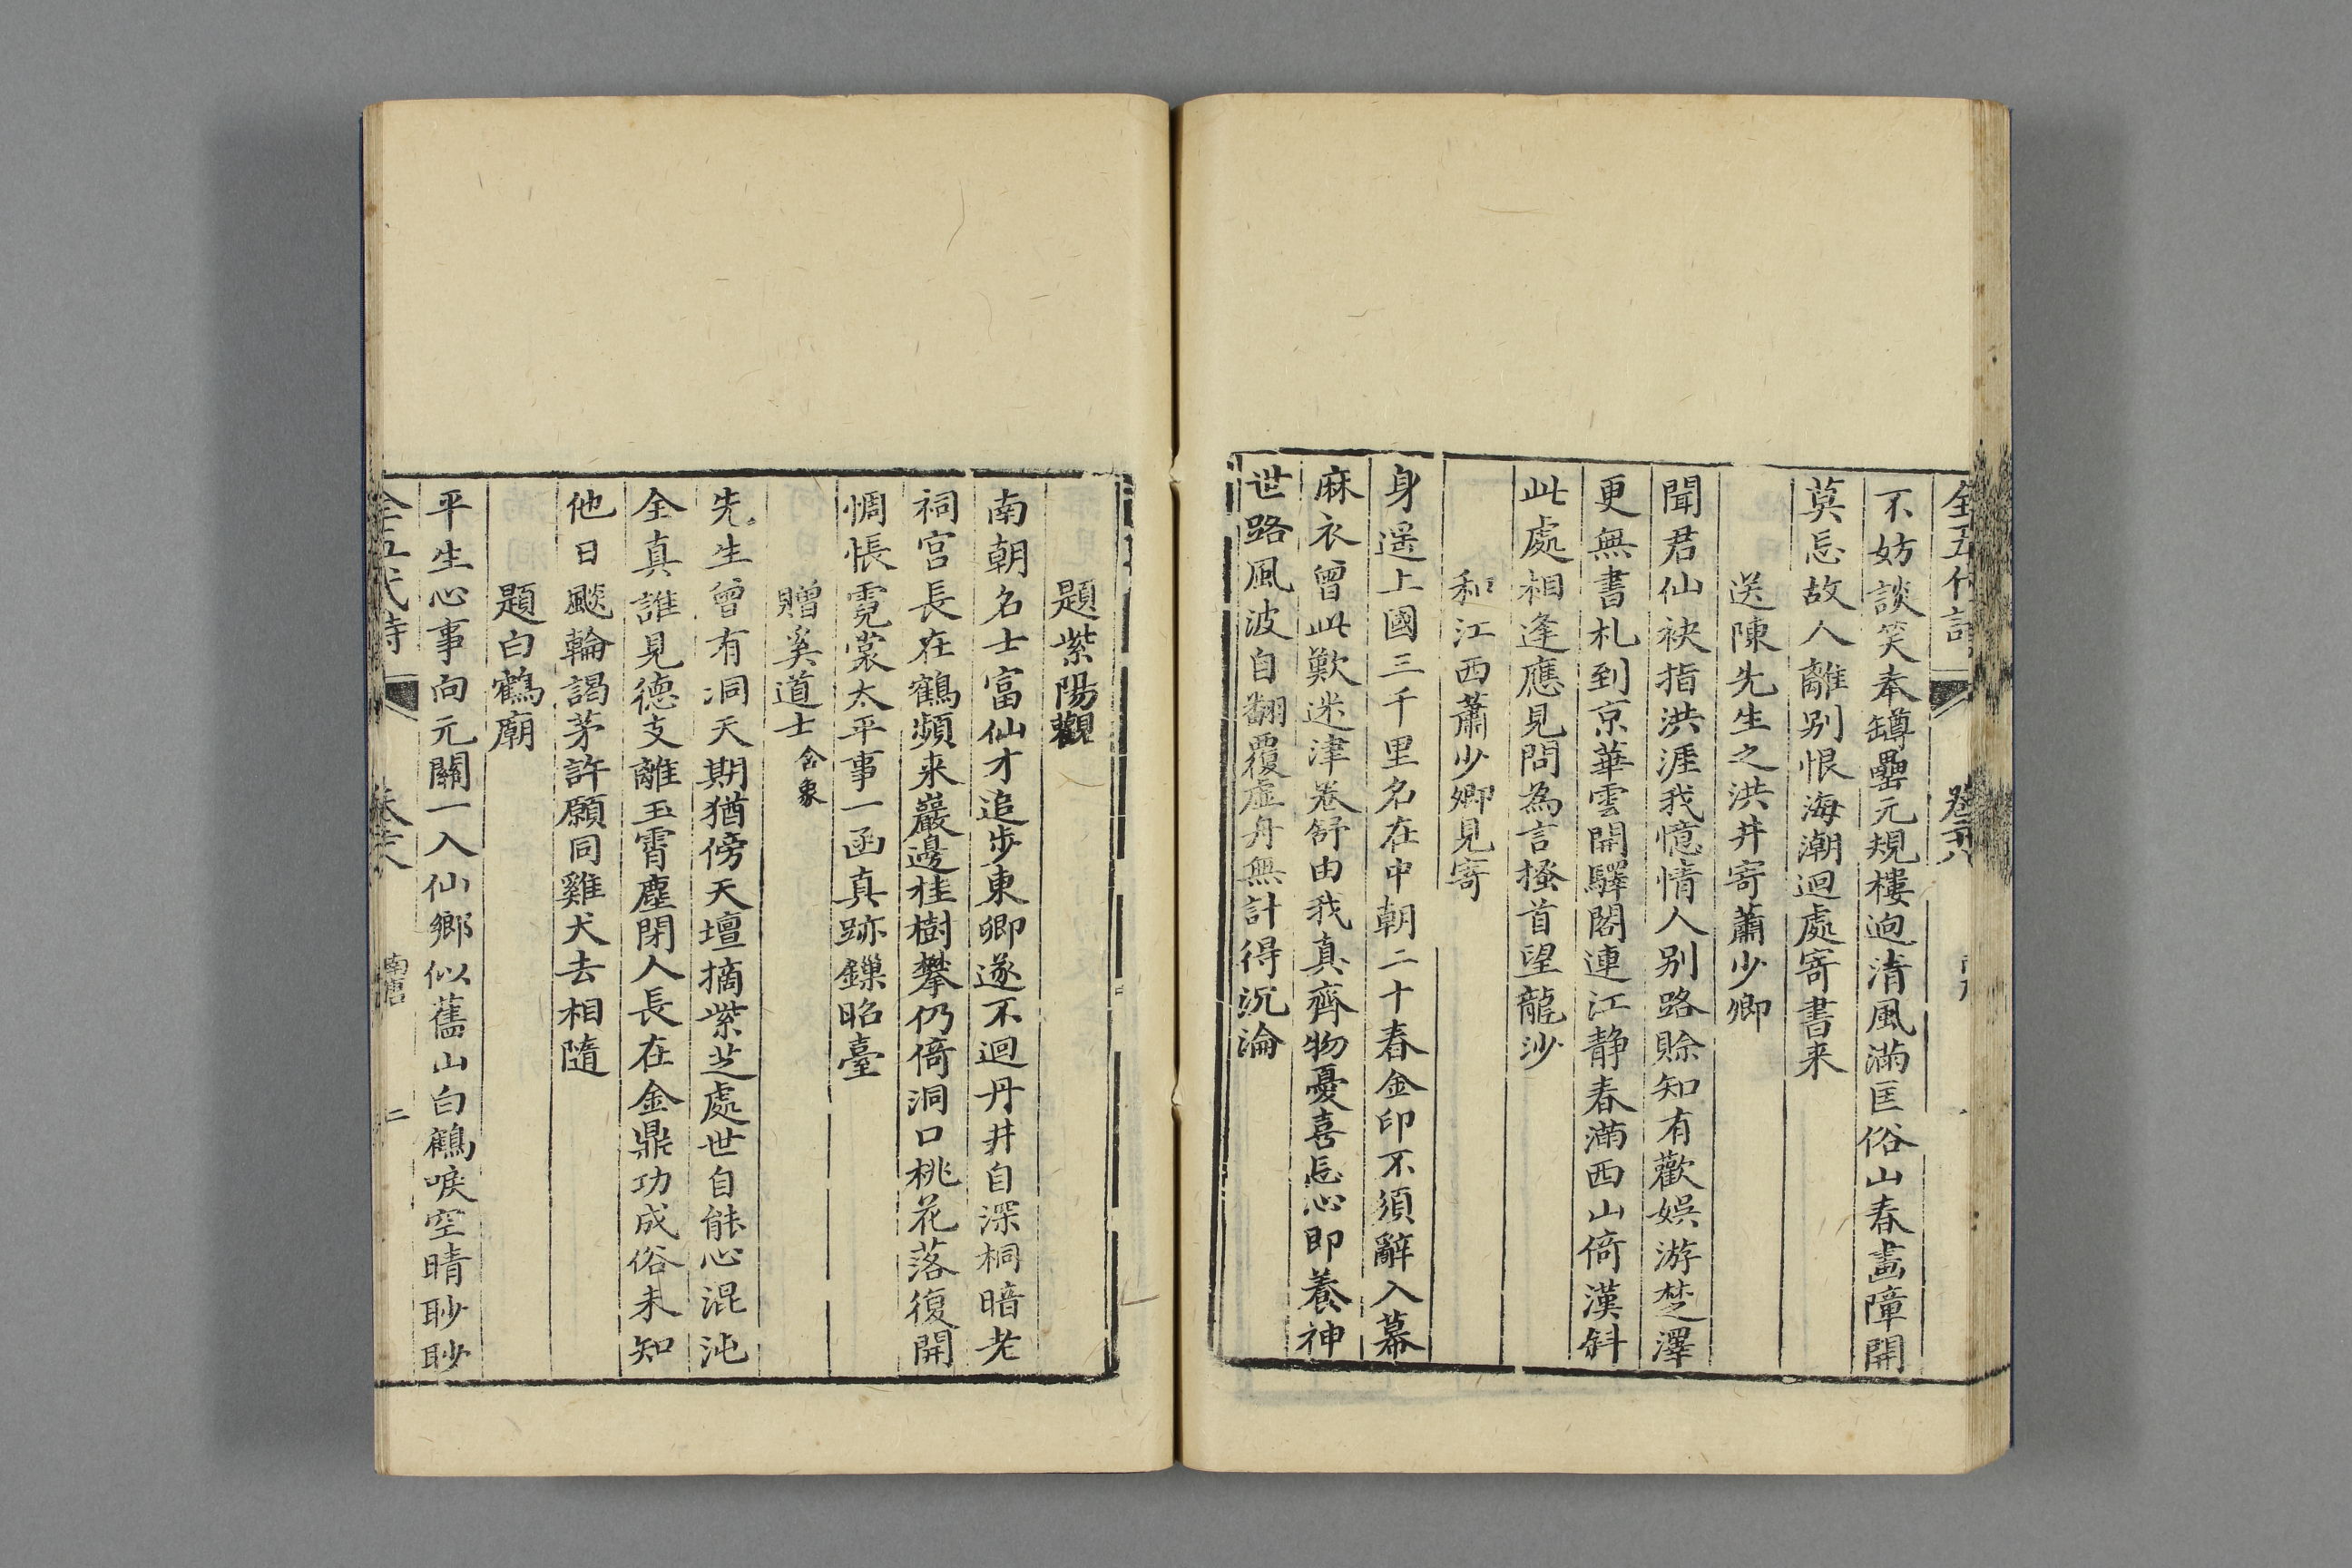 全五代詩
卷二十八
不妨談笑奉罇罍元規樓迥清風滿匡俗山春畵障開
莫忘故人離别恨海潮迴處寄書来
送陳先生之洪井寄蕭少卿
聞君仙袂指洪涯我憶情人别路賒知有歡娛游楚澤
更無書札到京華雲開驛閣連江静春滿西山倚漢斜
此處相逢應見問為言搔首望龍沙
和江西蕭少卿見寄
身遥上國三千里名在中朝二十春金印不須辭入幕
麻衣曾此歎迷津卷舒由我真齊物憂喜忘心即養神
世路風波自翻覆虛舟無計得沉淪
題紫陽觀
南朝名士富仙才追步東卿遂不迴丹井自深桐暗老
祠宫長在鶴頻来巖邊桂樹攀仍倚洞口桃花落復開
惆悵霓裳太平事一函真跡鏁昭臺
贈奚道士 含象
先生曾有洞天期猶傍天壇摘紫芝處世自能心混沌
全真誰見德支離玉霄塵閉人長在金鼎功成俗未知
他日飈輪謁茅許願同雞犬去相隨
題白鶴廟
平生心事向元關一入仙鄉似舊山白鶴唳空晴眇眇
全五代詩
卷二十八
南唐
二